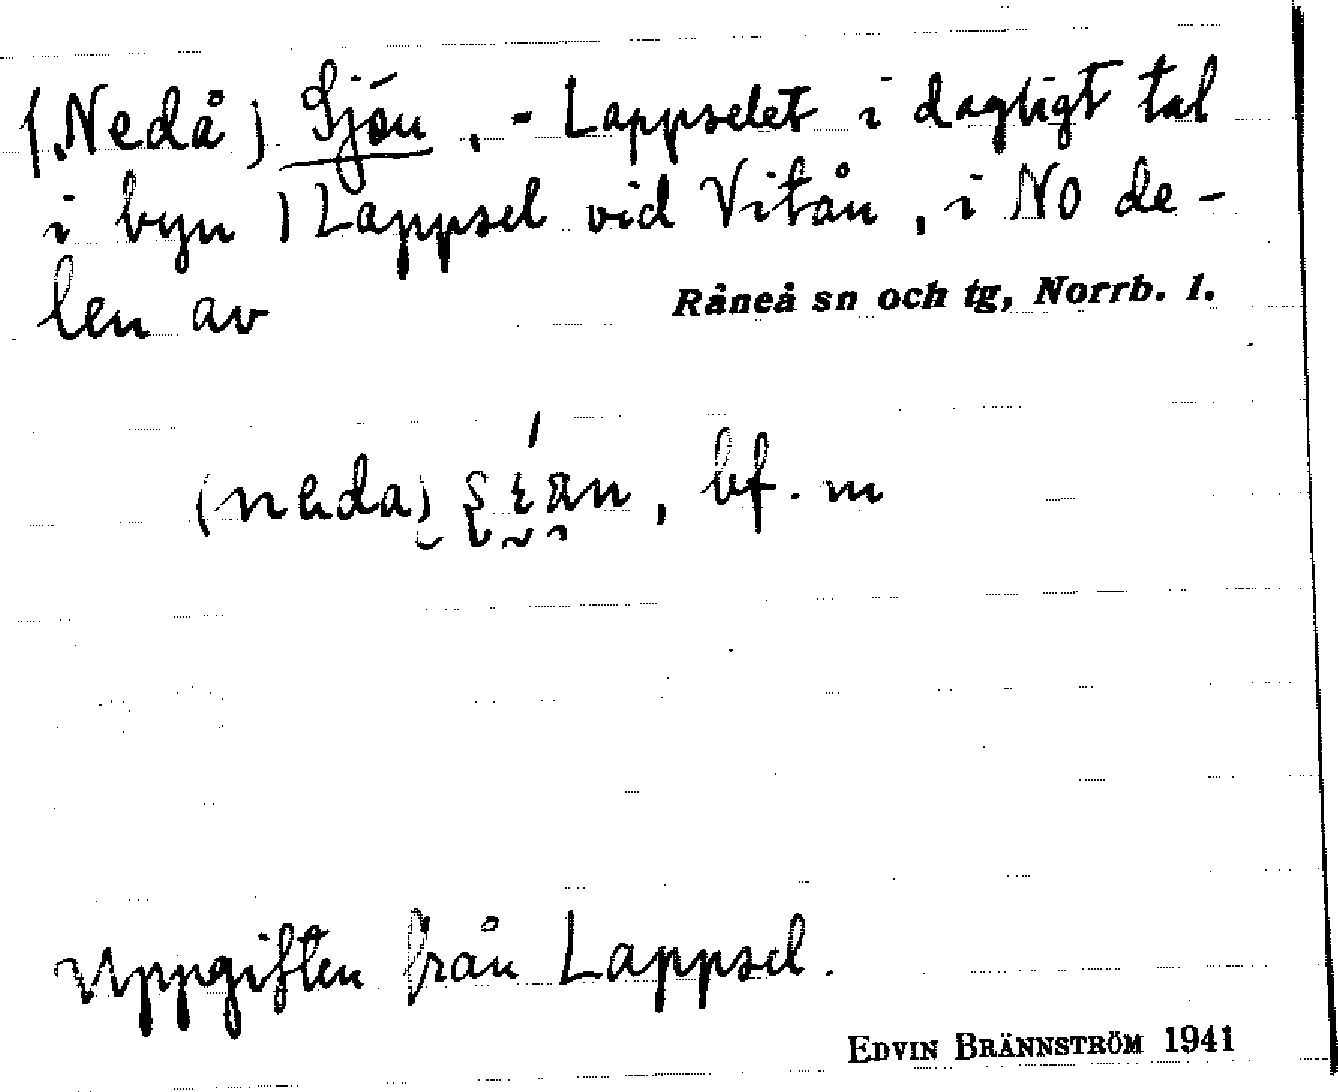 (Nedå) Sjön, - Lappselet i dagligt tal
i byn ) Lappsel vid Vitån, i NO de-
len av
Råneå sn och tg, Norrb. l.
bf. m
Uppgiften från Lappsel.
EDVIN BRÄNNSTRÖM 1941